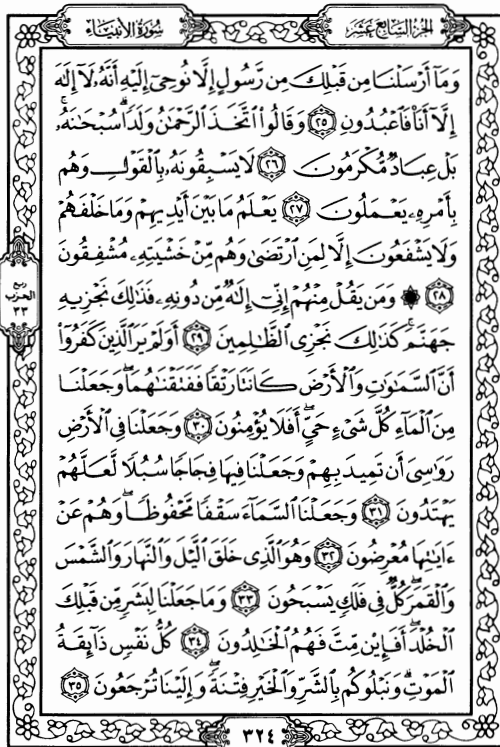 سُورَةُ الأَنبِيَاءِ
الجُزءُ السَّابِعُ عَشَرَ
وَمَآ أَرْسَلْنَا مِن قَبْلِكَ مِن رَّسُولٍ إِلَّا نُوحِىٓ إِلَيْهِ أَنَّهُۥ لَآ إِلَٰهَ
إِلَّآ أَنَا۠ فَٱعْبُدُونِ ٢٥ وَقَالُوا۟ ٱتَّخَذَ ٱلرَّحْمَٰنُ وَلَدًا ۗ سُبْحَٰنَهُۥ ۚ
بَلْ عِبَادٌ مُّكْرَمُونَ ٢٦ لَا يَسْبِقُونَهُۥ بِٱلْقَوْلِ وَهُم
بِأَمْرِهِۦ يَعْمَلُونَ ٢٧ يَعْلَمُ مَا بَيْنَ أَيْدِيهِمْ وَمَا خَلْفَهُمْ
وَلَا يَشْفَعُونَ إِلَّا لِمَنِ ٱرْتَضَىٰ وَهُم مِّنْ خَشْيَتِهِۦ مُشْفِقُونَ
٢٨ ۞ وَمَن يَقُلْ مِنْهُمْ إِنِّىٓ إِلَٰهٌ مِّن دُونِهِۦ فَذَٰلِكَ نَجْزِيهِ
جَهَنَّمَ ۚ كَذَٰلِكَ نَجْزِى ٱلظَّٰلِمِينَ ٢٩ أَوَلَمْ يَرَ ٱلَّذِينَ كَفَرُوٓا۟
أَنَّ ٱلسَّمَٰوَٰتِ وَٱلْأَرْضَ كَانَتَا رَتْقًا فَفَتَقْنَٰهُمَا ۖ وَجَعَلْنَا
مِنَ ٱلْمَآءِ كُلَّ شَىْءٍ حَىٍّ ۖ أَفَلَا يُؤْمِنُونَ ٣٠ وَجَعَلْنَا فِى ٱلْأَرْضِ
رَوَٰسِىَ أَن تَمِيدَ بِهِمْ وَجَعَلْنَا فِيهَا فِجَاجًا سُبُلًا لَّعَلَّهُمْ
يَهْتَدُونَ ٣١ وَجَعَلْنَا ٱلسَّمَآءَ سَقْفًا مَّحْفُوظًا ۖ وَهُمْ عَنْ
ءَايَٰتِهَا مُعْرِضُونَ ٣٢ وَهُوَ ٱلَّذِى خَلَقَ ٱلَّيْلَ وَٱلنَّهَارَ وَٱلشَّمْسَ
وَٱلْقَمَرَ ۖ كُلٌّ فِى فَلَكٍ يَسْبَحُونَ ٣٣ وَمَا جَعَلْنَا لِبَشَرٍ مِّن قَبْلِكَ
ٱلْخُلْدَ ۖ أَفَإِي۟ن مِّتَّ فَهُمُ ٱلْخَٰلِدُونَ ٣٤ كُلُّ نَفْسٍ ذَآئِقَةُ
ٱلْمَوْتِ ۗ وَنَبْلُوكُم بِٱلشَّرِّ وَٱلْخَيْرِ فِتْنَةً ۖ وَإِلَيْنَا تُرْجَعُونَ ٣٥
ربع
الحزب
٣٣
٣٢٤